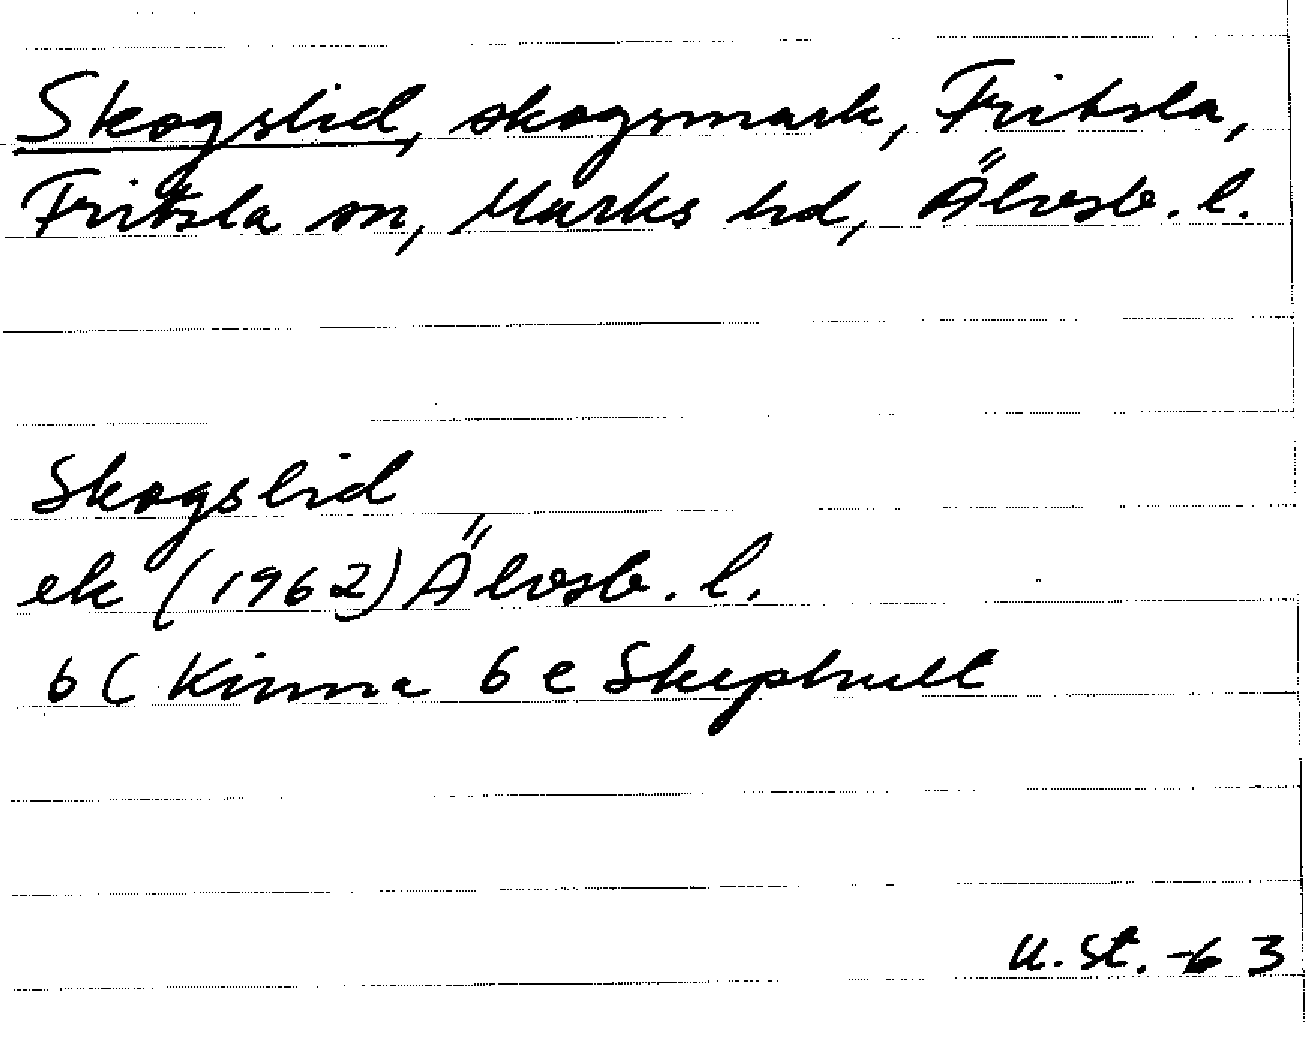 Skogslid, skogsmark, Fritsla,
Fritsla sn, Marks hd, Älvsb. l.
Skogslid
ek (1962) Älvsb. l.
6 C Kinna 6 e Skephult
U. St. -63